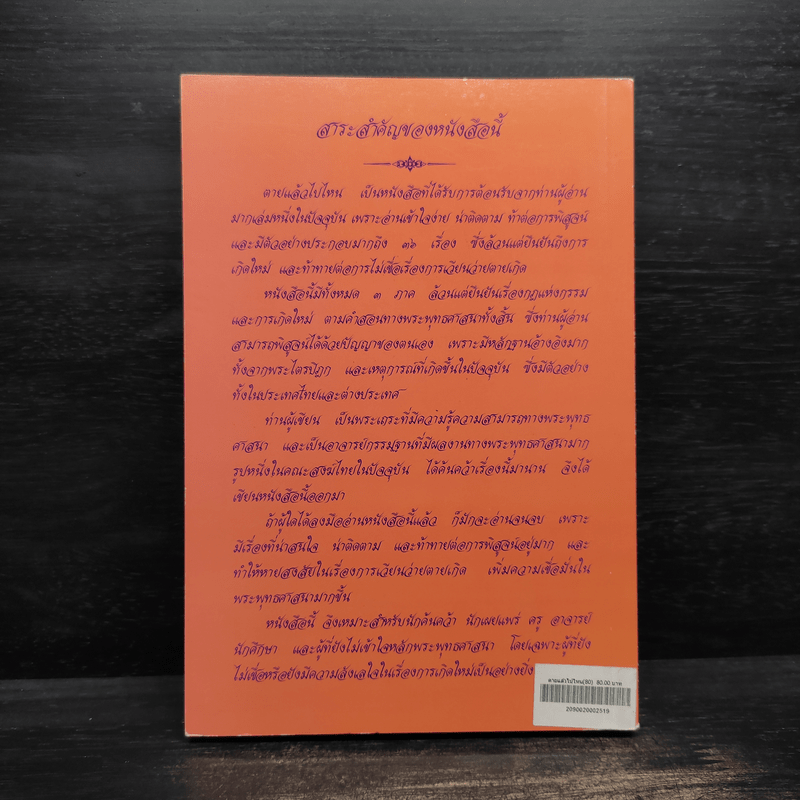 สาระสำคัญของหนังสือนี้
ตายแล้วไปไหน เป็นหนังสือที่ได้รับการต้อนรับจากท่านผู้อ่าน
มากเล่มหนึ่งในปัจจุบัน เพราะอ่านเข้าใจง่าย น่าติดตาม ท้าต่อการพิสูจน์
และมีตัวอย่างประกอบมากถึง ๓๖ เรื่อง ซึ่งล้วนแต่ยืนยันถึงการ
เกิดใหม่ และท้าทายต่อการไม่เชื่อเรื่องการเวียนว่ายตายเกิด
หนังสือนี้มีทั้งหมด ๓ ภาค ล้วนแต่ยืนยันเรื่องกฎแห่งกรรม
และการเกิดใหม่ ตามคำสอนทางพระพุทธศาสนาทั้งสิ้น ซึ่งท่านผู้อ่าน
สามารถพิสูจน์ได้ด้วยปัญญาของตนเอง เพราะมีหลักฐานอ้างอิงมาก
ทั้งจากพระไตรปิฎก และเหตุการณ์ที่เกิดขึ้นในปัจจุบัน ซึ่งมีตัวอย่าง
ทั้งในประเทศไทยและต่างประเทศ
ท่านผู้เขียน เป็นพระเถระที่มีความรู้ความสามารถทางพระพุทธ
ศาสนา และเป็นอาจารย์กรรมฐานที่มีผลงานทางพระพุทธศาสนามาก
รูปหนึ่งในคณะสงฆ์ไทยในปัจจุบัน ได้ค้นคว้าเรื่องนี้มานาน จึงได้
เขียนหนังสือนี้ออกมา
ถ้าผู้ใดได้ลงมืออ่านหนังสือนี้แล้ว ก็มักจะอ่านจนจบ เพราะ
มีเรื่องที่น่าสนใจ น่าติดตาม และท้าทายต่อการพิสูจน์อยู่มาก และ
ทำให้หายสงสัยในเรื่องการเวียนว่ายตายเกิด เพิ่มความเชื่อมั่นใน
พระพุทธศาสนามากขึ้น
หนังสือนี้ จึงเหมาะสำหรับนักค้นคว้า นักเผยแพร่ ครู อาจารย์
นักศึกษา และผู้ที่ยังไม่เข้าใจหลักพระพุทธศาสนา โดยเฉพาะผู้ที่ยัง
ไม่เชื่อหรือยังมีความลังเลใจในเรื่องการเกิดใหม่เป็นอย่างยิ่ง
ตายแล้วไปไหน(80) 80.00 บาท
2090020002519